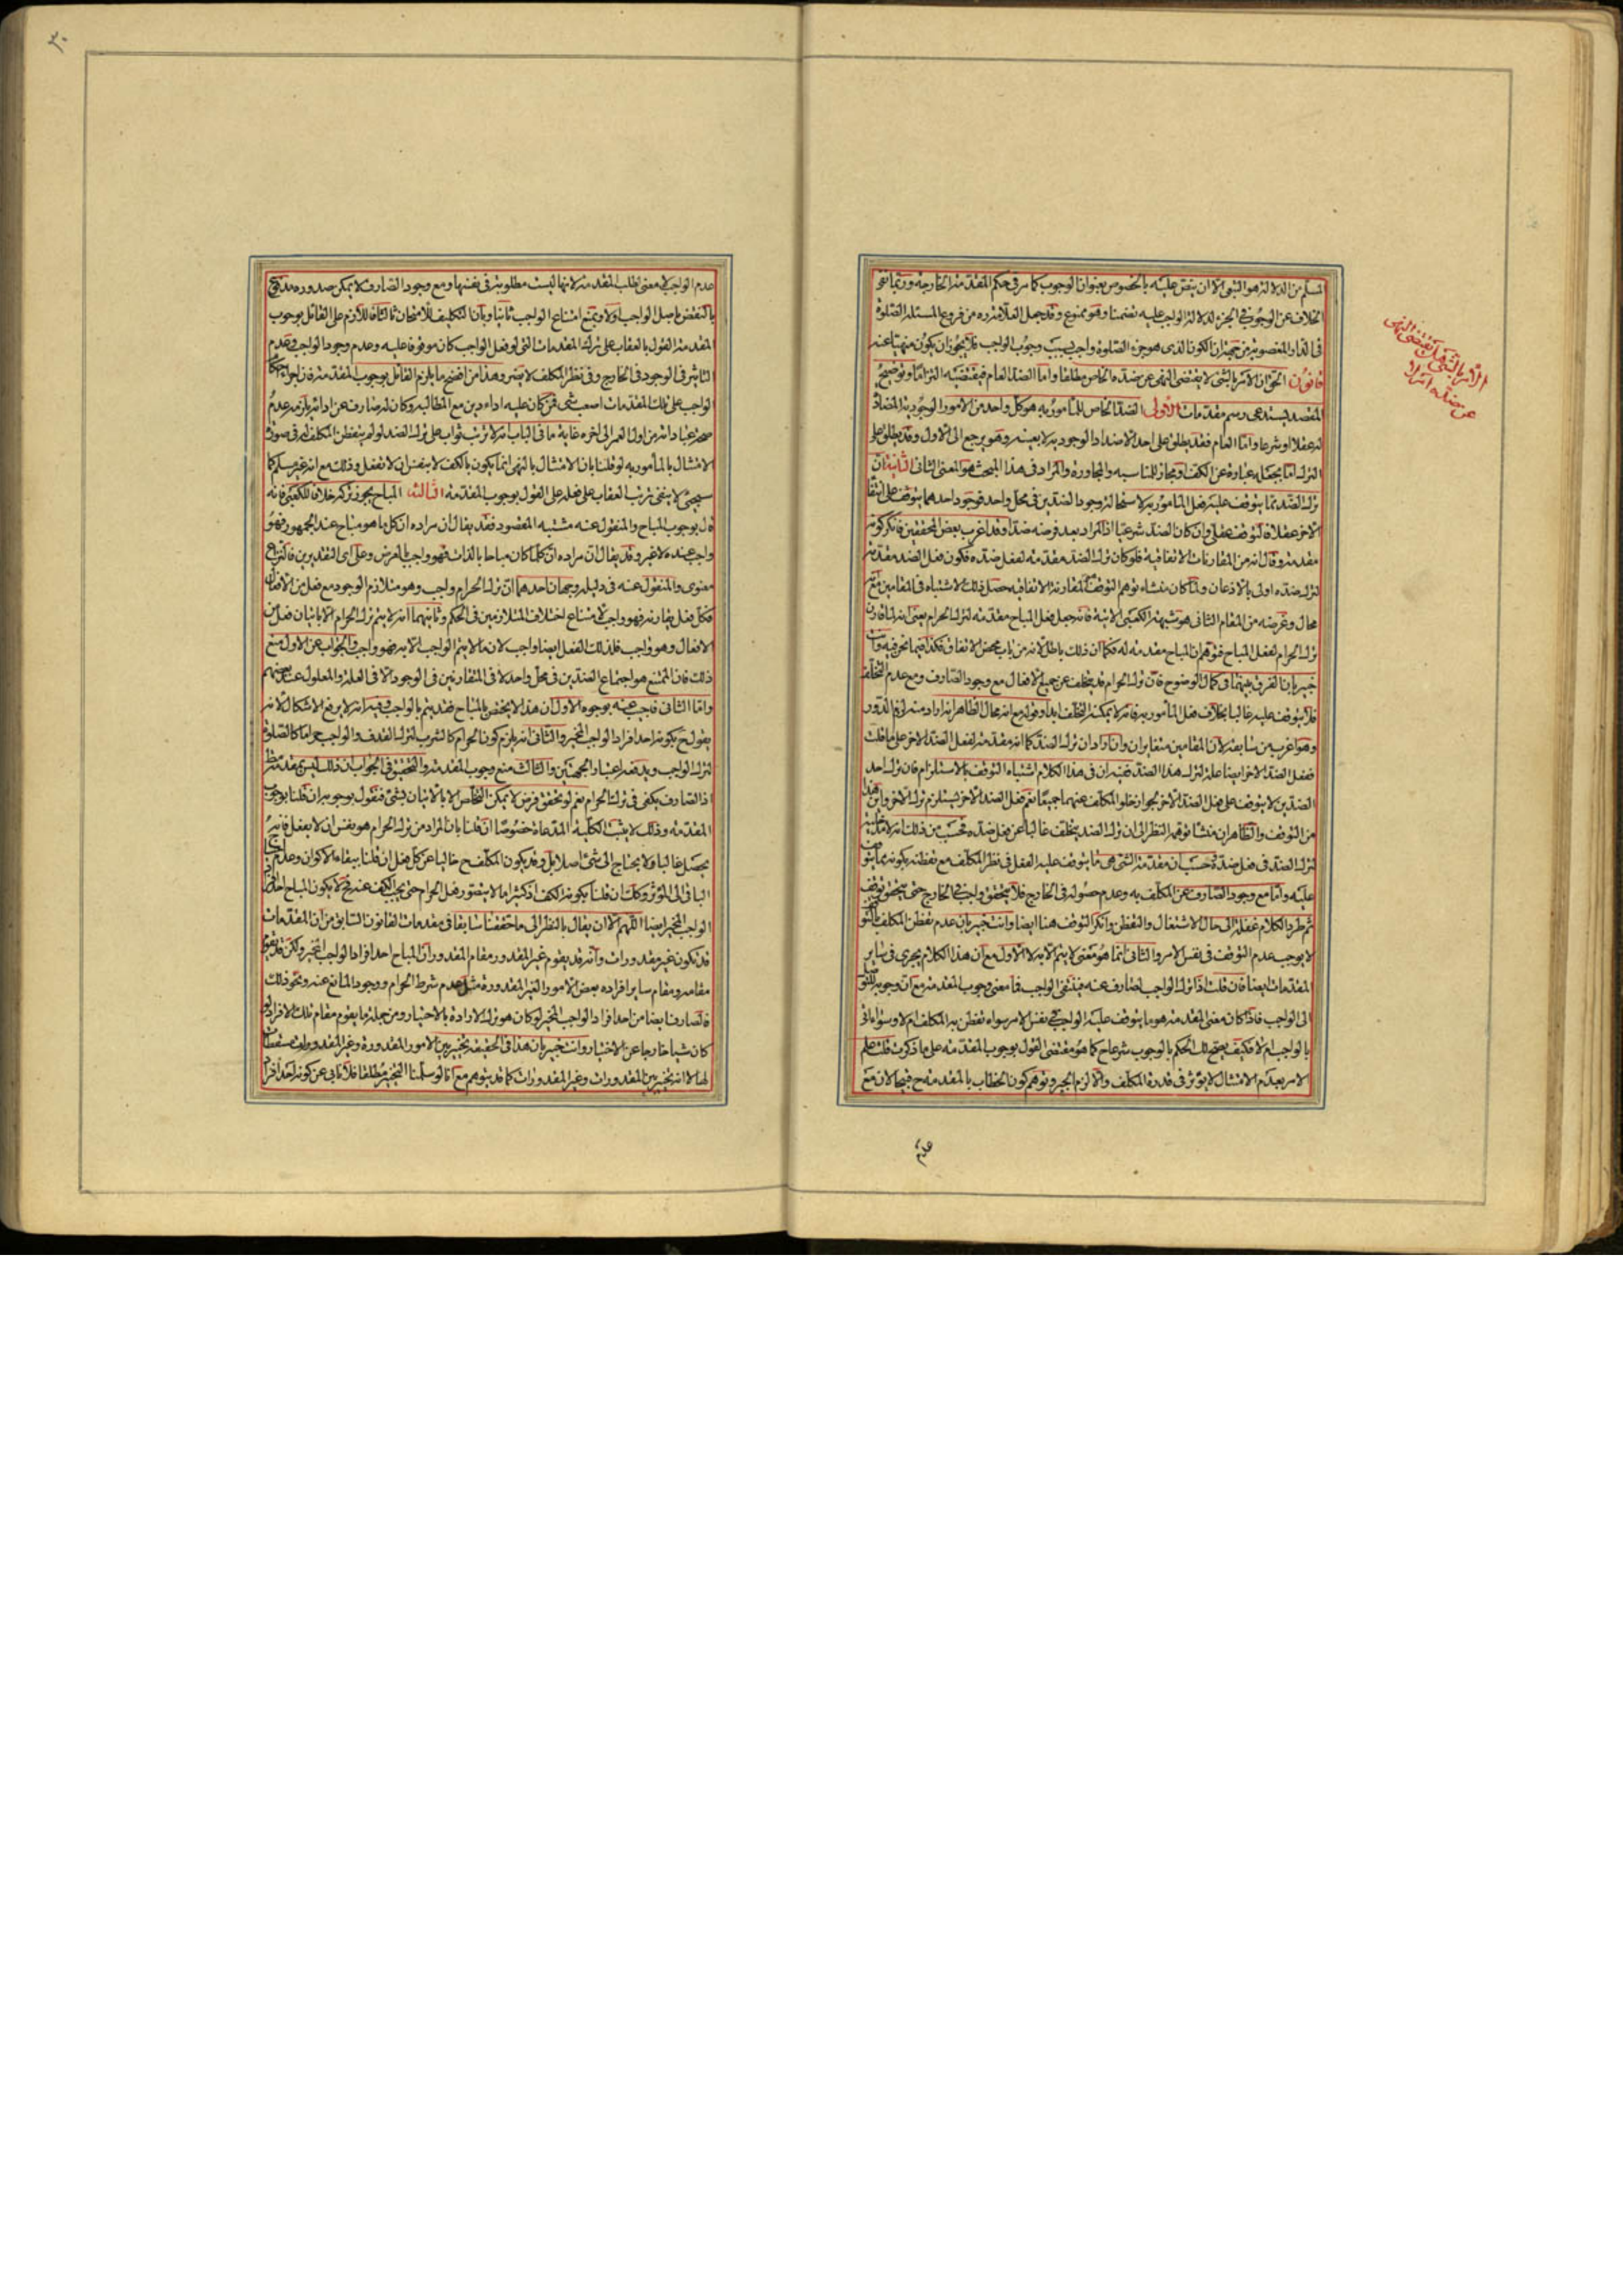 المسلم من الدلالة هو التبعي الا ان ينص عليه بالخصوص بعنوان الوجوب كما مر في حكم المقدمة الخارجة وربما نفي
الخلاف عن الوجوب في الجزء لدلالة الواجب عليه تضمنا وهو ممنوع وقد جعل العلامة ره من فروع المسئلة الصلوة
في الدار المغصوبة من جهة ان الكون الذي هو جزء الصلوة واجب بسبب وجوب الواجب فلا يجوز ان يكون منهيا عنه
قانون الحق ان الامر بالشئ لا يقتضي النهي عن ضده الخاص مطلقا واما الضد العام فيقتضيه التزاما وتوضيح
المقصد يستدعي رسم مقدمات الاولى الضد الخاص للمأمور به هو كل واحد من الامور الوجودية المضادة
له عقلا او شرعا واما العام فقد يطلق على احد الاضداد الوجودية لا بعينه وهو يرجع الى الاول وقد يطلق على
الترك اما بجعله عبارة عن الكف او مجازا للمناسبة والمجاورة والمراد في هذا المبحث هو المعنى الثاني الثانية ان
ترك الضد مما يتوقف عليه فعل المأمور به لاستحالة وجود الضدين في محل واحد فوجود احدهما يتوقف على انتفاء
الاخر عقلا فالتوقف عقلي وان كان الضد شرعيا اذ المراد بعد فرضه ضدا وقد اغرب بعض المحققين فانكر كونه
مقدمة وقال انه من المقارنات الاتفاقية فلو كان ترك الضد مقدمة لفعل ضده فكون فعل الضد مقدمة
لترك ضده اولى بالاذعان ولما كان منشاء توهم التوقف المقارنة الاتفاقية حصل ذلك الاشتباه في المقامين مع
محال وغرضه من المقام الثاني هو شبهة الكعبي الاتية فانه جعل فعل المباح مقدمة لترك الحرام يعني انه لما قارن
ترك الحرام لفعل المباح فتوهم ان المباح مقدمة له فكما ان ذلك باطل لانه من باب محض الاتفاق فكذا فيما نحن فيه وانت
خبير بان الفرق بينهما في كمال الوضوح فان ترك الحرام قد يتخلف عن جميع الافعال مع وجود الصارف ومع عدم التخلف
فلا يتوقف عليه غالبا بخلاف فعل المأمور به فانه لا يمكنه التخلف ابدا وقوله مع انه محال الظاهر انه اراد منه لزوم الدور
وهو اغرب من سابقه لان المقامين متغايران وان اراد ان ترك الضد كما انه مقدمة لفعل الضد الاخر على ما قلت
ففعل الضد الاخر ايضا علة لترك هذا الضد ففيه ان في هذا الكلام اشتباه التوقف بالاستلزام فان ترك احد
الضدين لا يتوقف على فعل الضد الاخر لجواز خلو المكلف عنهما جميعا نعم فعل الضد الاخر يستلزم ترك الاخر واين هذا
من التوقف والظاهر ان منشا توهمه النظر الى ان ترك الضد يتخلف غالبا عن فعل ضده فحسب من ذلك انه لا مدخلية
لترك الضد في فعل ضده وحسب ان مقدمة الشئ هي ما يتوقف عليه الفعل في نظر المكلف مع تفطنه بكونه مما يتوقف
عليه واما مع وجود الصارف عن المكلف به وعدم حصوله في الخارج فلا يتحقق واجب في الخارج حتى يتحقق توقف
ثم طرد الكلام غفلة الى حال الاشتغال والتفطن وانكر التوقف هنا ايضا وانت خبير بان عدم تفطن المكلف بالتوقف
لا يوجب عدم التوقف في نفس الامر والثاني انما هو معنى لا يتم الا به لا الاول مع ان هذا الكلام يجري في ساير
المقدمات ايضا فان قلت اذا ترك الواجب لصارف عنه فينتفي الواجب فما معنى وجوب المقدمة مع ان وجوبه للتوصل
الى الواجب فاذا كان معنى المقدمة هو ما يتوقف عليه الواجب في نفس الامر سواء تفطن به المكلف ام لا وسواء اتى
بالواجب ام لا فكيف يصح لك الحكم بالوجوب شرعا ح كما هو مقتضى القول بوجوب المقدمة على ما ذكرت قلت علم
الامر بعدم الامتثال لا يؤثر في قدرة المكلف والا لزم الجبر وتوهم كون الخطاب بالمقدمة ح قبيحا لان مع
عدم
الامر بالشئ هل يقتضي النهي
عن ضده ام لا
٣٠
عدم الواجب لا معنى لطلب المقدمة لانها ليست مطلوبة في نفسها ومع وجود الصارف لا يمكن صدوره مدفوع
بالنقض باصل الواجب اولا وبمنع امتناع الواجب ثانيا وبان التكليف للامتحان ثالثا فاللازم على القائل بوجوب
المقدمة القول بالعقاب على ترك المقدمات التي لو فعل الواجب كان موقوفا عليه وعدم وجود الواجب وعدم
التاثير في الوجود في الخارج وفي نظر المكلف لا يضر وهذا من افضح ما يلزم القائل بوجوب المقدمة فان
الواجب على تلك المقدمات اصعب شئ فمن كان عليه اداء دين مع المطالبة وكان له صارف عن ادائه يلزمه عدم
صحة عباداته من اول العمر الى اخره غاية ما في الباب انه لا ترتب ثواب على ترك الضد لو لم يتفطن المكلف له في صورة
الامتثال بالمأمور به لو قلنا بان الامتثال بالنهي انما يكون بالكف لا بنفس ان لا تفعل وذلك مع انه غير مسلم كما
سيجئ لا ينفي ترتب العقاب على فعله على القول بوجوب المقدمة الثالثة المباح يجوز تركه خلافا للكعبي فانه
قال بوجوب المباح والمنقول عنه مشتبه المقصود فقد يقال ان مراده ان كل ما هو مباح عند الجمهور فهو
واجب عنده لا غير وقد يقال ان مراده ان كلما كان مباحا بالذات فهو واجب بالعرض وعلى اى التقديرين فالنزاع
معنوى والمنقول عنه في دليله وجهان احدهما ان ترك الحرام واجب وهو متلازم الوجود مع فعل من الافعال
فكل فعل يقارنه فهو واجب لامتناع اختلاف المتلازمين في الحكم وثانيهما انه لا يتم ترك الحرام الا باتيان فعل من
الافعال وهو واجب فذلك الفعل ايضا واجب لان ما لا يتم الواجب الا به فهو واجب والجواب عن الاول منع
ذلك فان الممتنع هو اجتماع الضدين في محل واحد لا في المتقارنين في الوجود الا في العلة والمعلول عند بعضهم
واما الثاني فاجيب عنه بوجوه الاول ان هذا لا يختص بالمباح فقد يتم بالواجب وفيه انه لا يرفع الاشكال لانه
يقول ح بكونه احد افراد الواجب المخير والثاني انه يلزم كون الحرام كالشرب لترك القذف والواجب حراما كالصلوة
لترك الواجب ويدفعه اعتبار الجهتين والثالث منع وجوب المقدمة والتحقيق في الجواب ان ذلك ليس بمقدمة مطلقا
اذ الصارف يكفي في ترك الحرام نعم لو تحقق فرض لا يمكن التخلص الا بالاتيان بشئ فنقول بوجوبه ان قلنا بوجوب
المقدمة وذلك لا يثبت الكلية المدعاة خصوصا ان قلنا بان المراد من ترك الحرام هو نفس ان لا يفعل فانه
يحصل غالبا ولا يحتاج الى شئ اصلا بل وقد يكون المكلف ح خاليا عن كل فعل ان قلنا ببقاء الاكوان وعدم احتياج
الباقي الى المؤثر وكذلك ان قلنا بكونه الكف اذ كثيرا ما لا يتصور فعل الحرام حتى يجب الكف عنه فح لا يكون المباح احد افراد
الواجب المخير ايضا اللهم الا ان يقال بالنظر الى ما حققنا سابقا في مقدمات القانون السابق من ان المقدمات
قد تكون غير مقدورات وانه قد يقوم غير المقدور مقام المقدور ان المباح احد افراد الواجب المخير ولكن قد يقوم
مقامه ومقام ساير افراده بعض الامور الغير المقدورة مثل عدم شرط الحرام ووجود المانع عنه ونحو ذلك
فالصارف ايضا من احد افراد الواجب المخير لو كان هو ترك الارادة بالاختيار ومن جملة ما يقوم مقام تلك الافراد لو
كان شيئا خارجا عن الاختيار وانت خبير بان هذا في الحقيقة تخيير بين الامور المقدورة وغير المقدورات مسقطات
لها لا انه تخيير بين المقدورات وغير المقدورات كما قد يتوهم مع انا لو سلمنا التخيير مطلقا فلا تابى عن كونه احد افراد